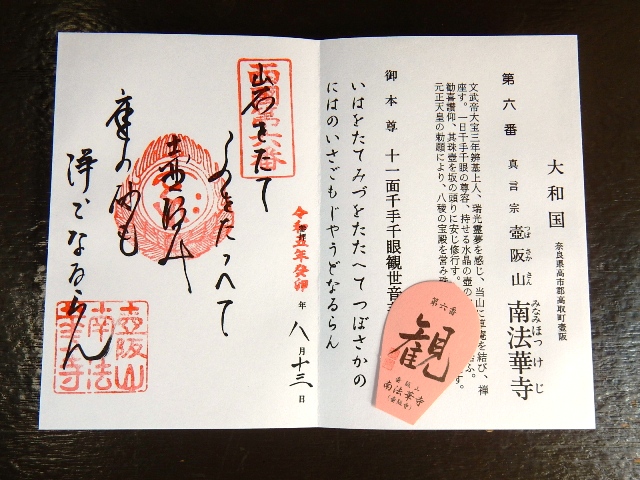 大和国 奈良県高市郡高取町壺阪
第六番 真言宗 壺阪山 南法華寺
つぼ さか さん みなみ ほつ け じ
文武帝大宝三年辨基上人、瑞光霊夢を感じ、当山に草庵を結び、禅
座す。一日千手千眼の尊容、持せる水晶の壺の
勧喜讃仰、其珠壺を坂の頭りに安じ修行す。
元正天皇の勅願により、八稜の宝殿を営み
御本尊 十一面千手千眼観世音
いはをたてみづをたたへてつぼさかの
にはのいさごもじやうどなるらん
第六番
観
壺阪山
南法華寺
(壺阪寺)
令和五年癸卯 年八月十三日
西国第六番
岩をたて
水をたゝへて
壺阪の
庭の砂も
浄土なるらん
壺阪山
南法
華寺